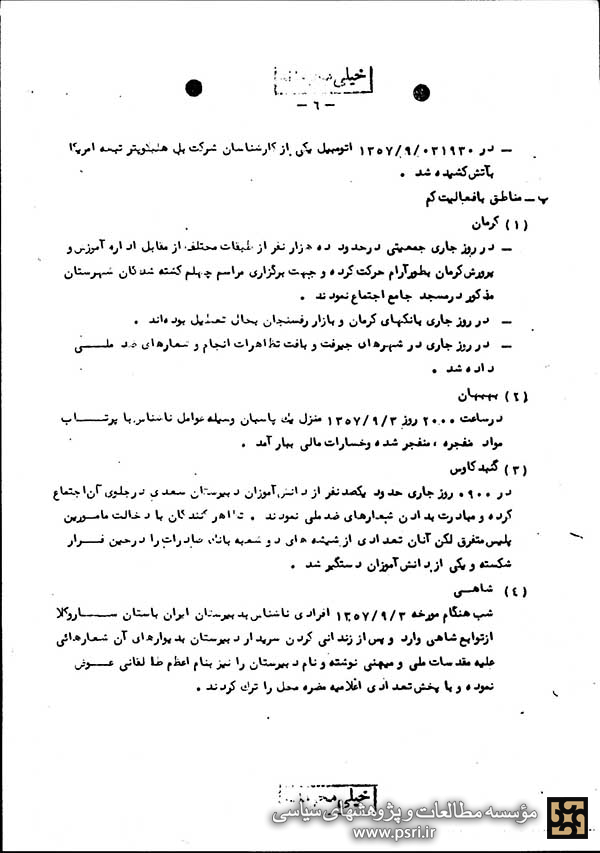 خیلی محرمانه
- ٦ -
- در ٠٣١٩٣٠/٩/١٣٥٧ اتومبیل یکی از کارشناسان شرکت بل هلیکوپتر تبعه امریکا
بآتش کشیده شد .
پ - مناطق بافعالیت کم
(١) کرمان
- در روز جاری جمعیتی درحدود ده هزار نفر از طبقات مختلف از مقابل اداره آموزش و
پرورش کرمان بطور آرام حرکت کرده و جهت برگزاری مراسم چهلم کشته شدگان شهرستان
مذکور درمسجد جامع اجتماع نمودند .
- در روز جاری بانکهای کرمان و بازار رفسنجان بحال تعطیل بوده‌اند .
- در روز جاری در شهرهای جیرفت و بافت تظاهرات انجام و شعارهای ضد ملی
داده شد .
(٢) بهبهان
درساعت ٢٠٠٠ روز ١٣٥٧/٩/٣ منزل یك پاسبان وسیله عوامل ناشناس با پرتاب
مواد منفجره ، منفجر شده وخسارات مالی ببار آمد .
(٣) گنبدکاوس
در ٠٩٠٠ روز جاری حدود یکصد نفر از دانش‌آموزان دبیرستان سعدی درجلوی آن اجتماع
کرده و مبادرت بدادن شعارهای ضد ملی نمودند . تظاهر کنندگان با دخالت مامورین
پلیس متفرق لکن آنان تعدادی از شیشه های دو شعبه بانك صادرات را درحین فرار
شکسته و یکی از دانش‌آموزان دستگیر شد .
(٤) شاهی
شب هنگام مورخه ١٣٥٧/٩/٣ افرادی ناشناس بدبیرستان ایران باستان ساروکلا
از توابع شاهی وارد و پس از زندانی کردن سریدار دبیرستان بدیوارهای آن شعارهائی
علیه مقدسات ملی و میهنی نوشته و نام دبیرستان را نیز بنام اعظم طالقانی عوض
نموده و با پخش تعدادی اعلامیه مضره محل را ترك کردند .
خیلی محرمانه
مؤسسه مطالعات و پژوهشهای سیاسی
www.psri.ir